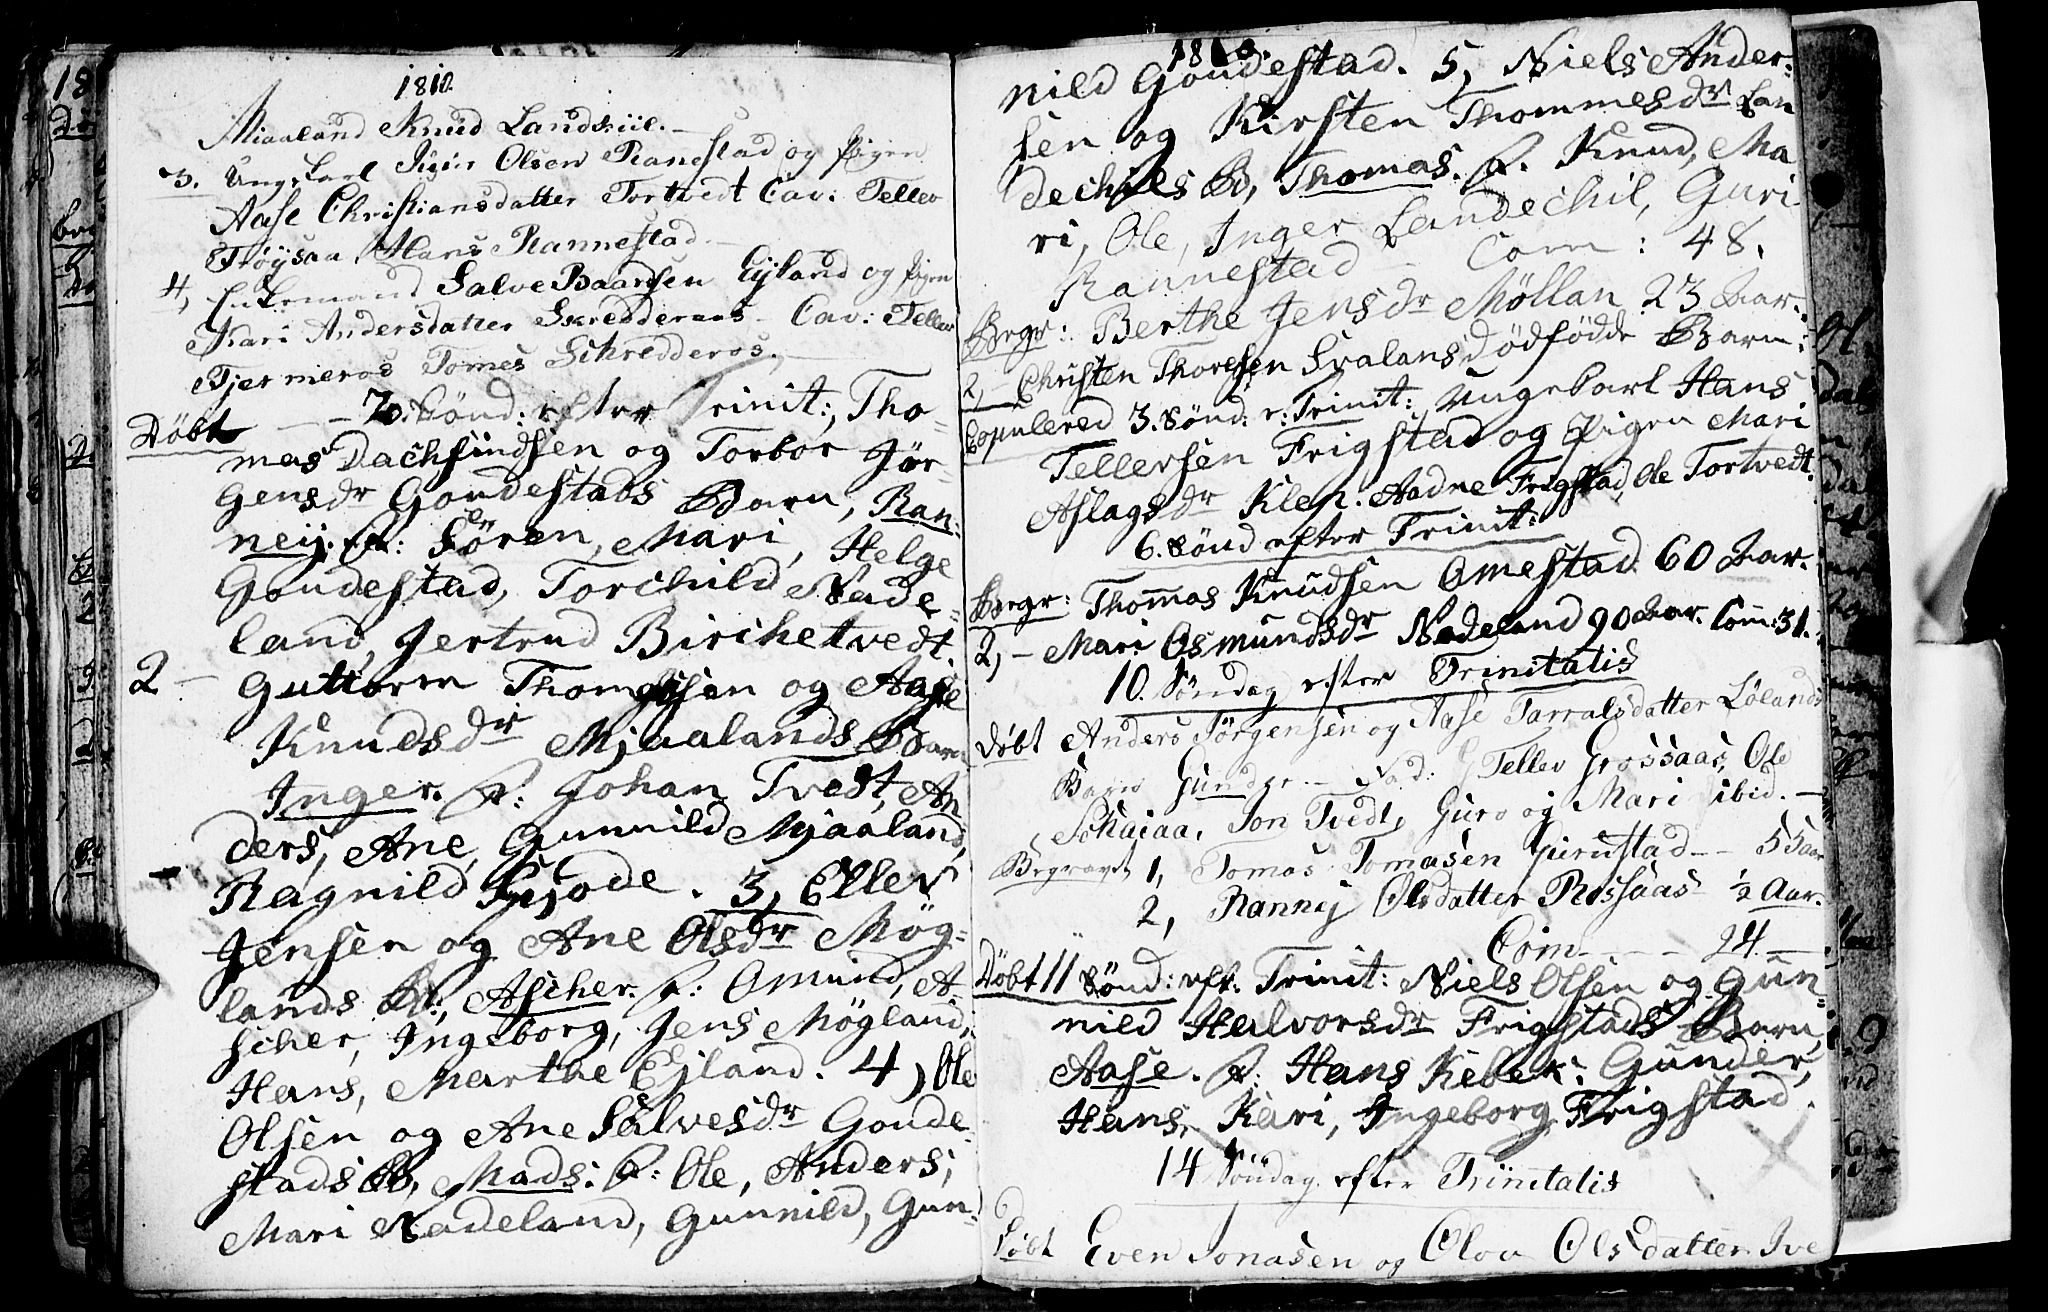 1810.
Miaaland Knud Landskiil. —
3. Ungekarl Siur Olsen Ranestad og Pigen
Aase Christiansdatter Tortvedt Cav: Tellev
Frøysaa, Hans Rannestad. —
4, Enkemand Salve Baardsen Eyland og Pigen
Kari Andersdatter Skredderaas — Cav: Tellev
Tjermeros Tomes Schredderos.
Döbt — 2. Sönd: efter Trinit:, Tho-
mas Dachfindsen og Torbor Jör-
gensdr Goudestads Barn, Ran-
neij. F: Sören, Mari, Helge
Goudestad, Torchild Nade-
land, Jertrud Birchetvedt.
2 — Guttorm Thomessen og Aase
Knudsdr Mjaalands Barn
Inger. F: Johan Tvedt, An
ders, Ane, Gunnild Mjaaland,
Ragnild Gjode. 3, Ellev
Jensen og Ane Olsdr Mög-
lands B:, Ascher. F: Omund, A
scher, Ingeborg, Jens Mögland,
Hans, Marthe Ejland. 4, Ole
Olsen og Ane Salvesdr Goude-
stads B, Mads: F: Ole, Anders,
Mari Nadeland, Gunnild, Gun-
1810.
nild Goudestad. 5, Niels Ander-
sen og Kirsten Thommesdr Lan
dechils B, Thomas. F. Knud, Ma
ri, Ole, Inger Landechil, Guri
Rannestad — Com: 48.
Begr: Berthe Jensdr Möllan 23 Aar.
2, — Christen Thoresen Svalans dödfödde Barn.
Copulered 3. Sönd: e: Trinit: Ungekarl Hans
Tellefsen Frigstad og Pigen Mari
Aslagsdr Klep. Aadne Frigstad, Ole Tortvedt.
6. Sönd efter Trinit:
Begr: Thommas Knudsen Omestad 60 Aar.
2, — Mari Osmundsdr Nodeland 90 Aar. Com: 31.
10. Söndag efter Trinitatis
Döbt Anders Jörgensen og Aase Tarralsdatter Lølands
Barn Gunder — Fad: Tellev Grossaas, Ole
Schaiaa, Jon Tvedt, Guro og Mari ibid. —
Begravet 1, Tomas Tomasen Gurustad — 5 Aar
2, Ranneij Olsdatter Rossaas ½ Aar.
Com — — — 24 —
Döbt 11 Sönd: eft. Trinit: Niels Olsen og Gun-
nild Halvorsdr Frigstads Barn,
Aase. F: Hans Kebek. Gunder,
Hans, Kari, Ingeborg Frigstad.
14 Söndag efter Trinitatis
Döbt Even Jonasen og Olou Olsdatter Ive